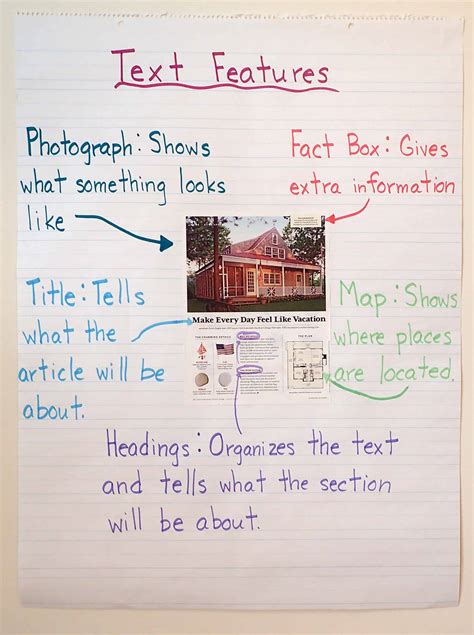 Text Features
Photograph: Shows
what something looks
like
Fact Box: Gives
extra information
Title: Tells
what the
article will be
about.
Map: Shows
where places
are located.
Make Every Day Feel Like Vacation
THE PLAN
Headings: Organizes the text
and tells what the section
will be about.